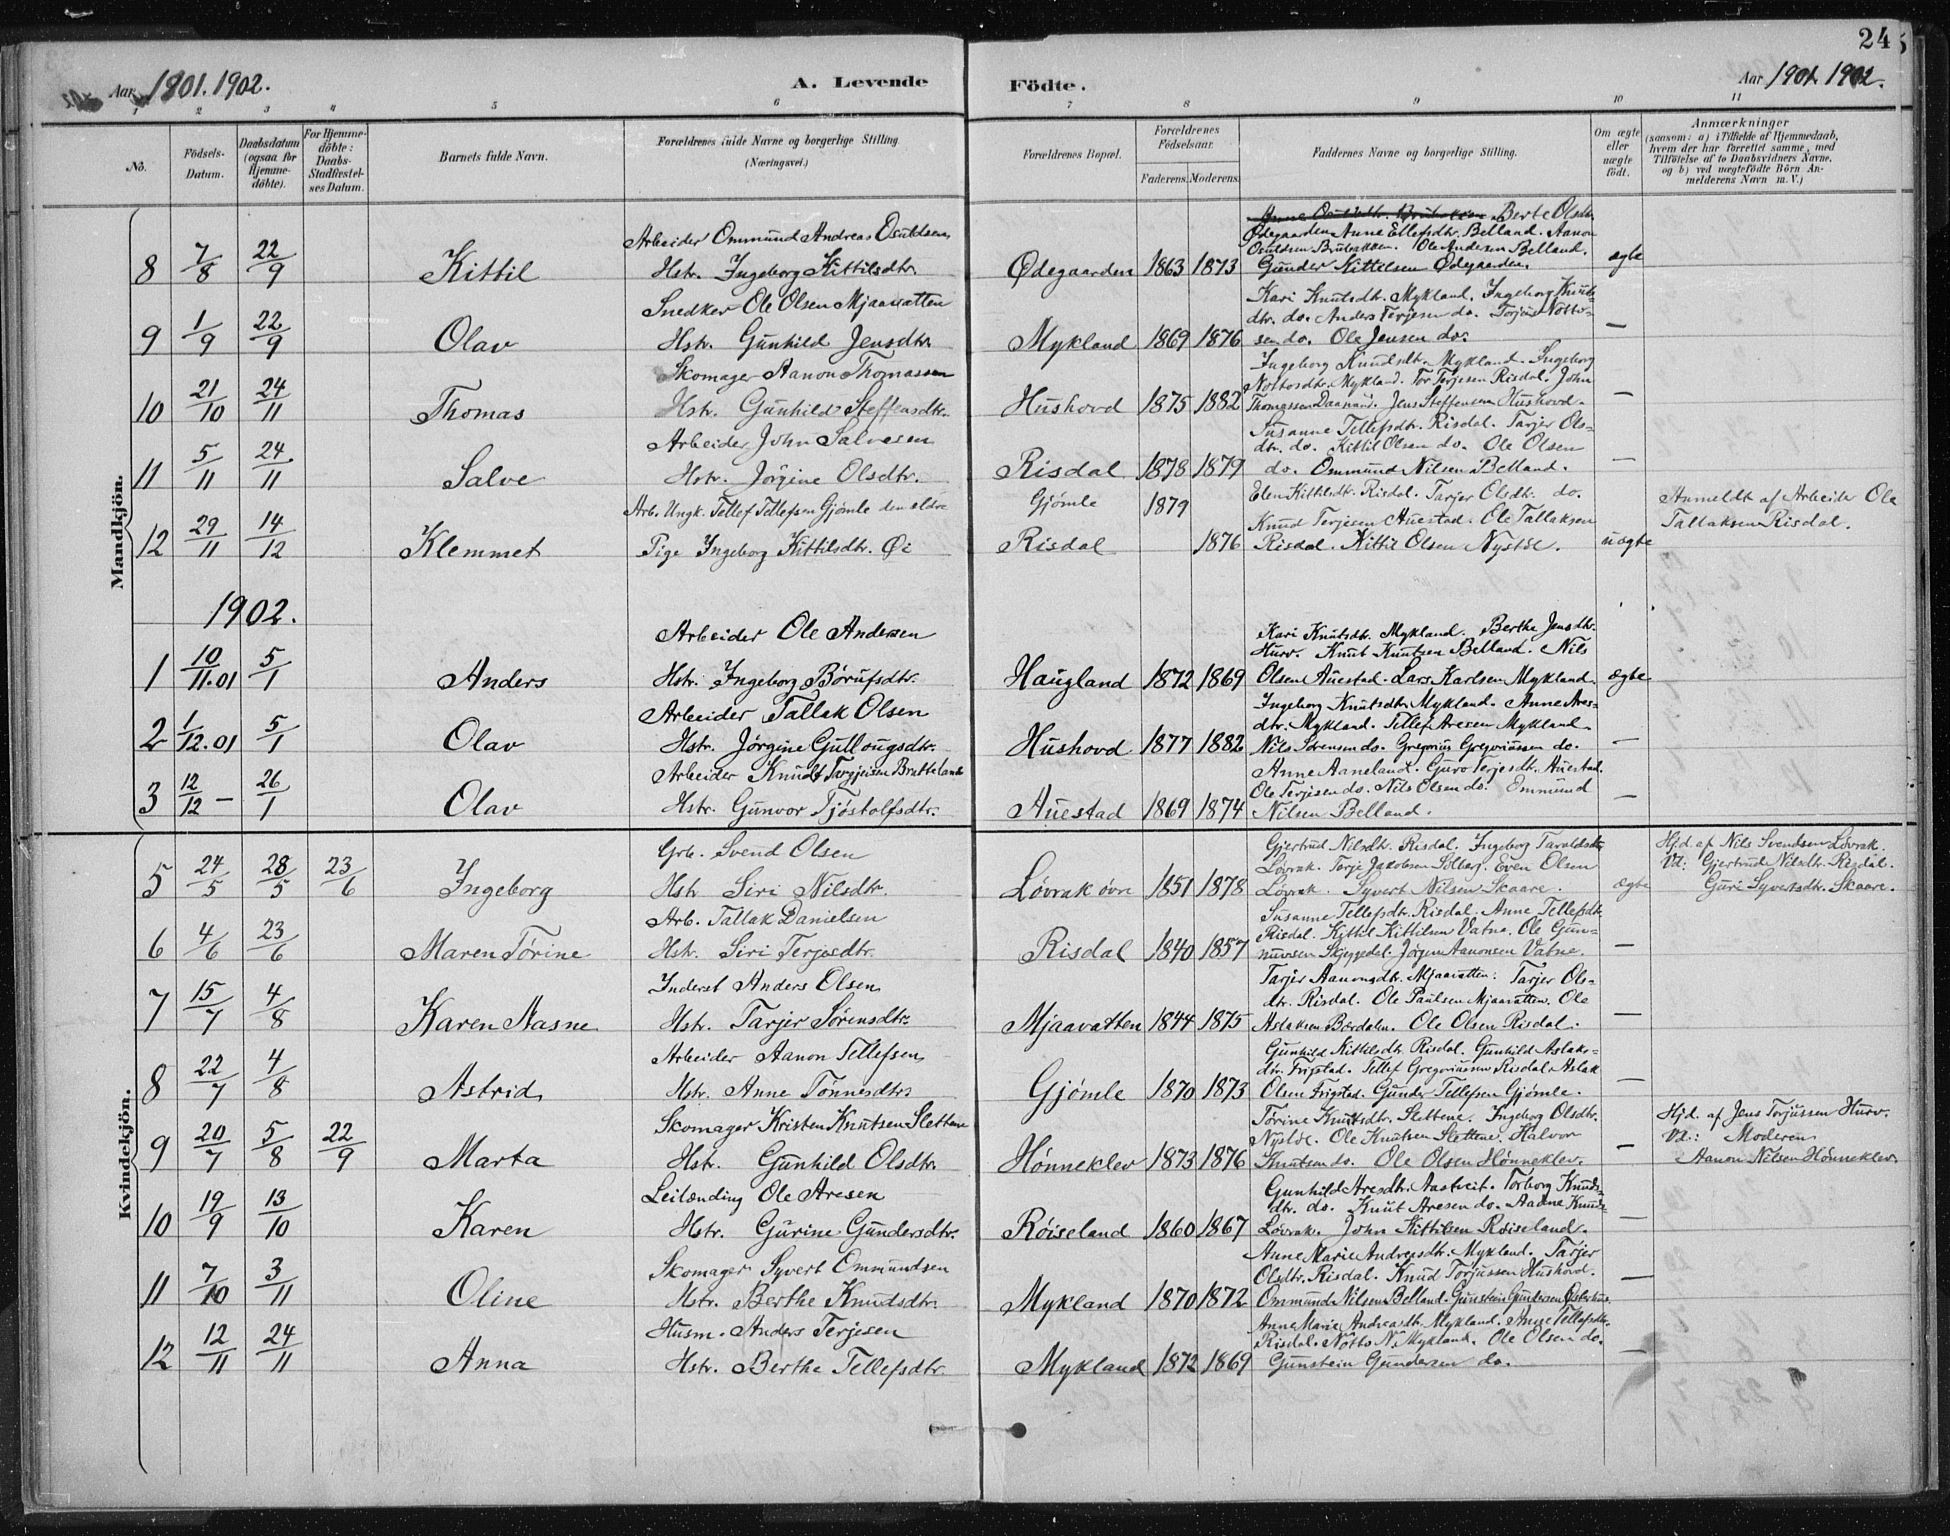 24
Aar 1901. 1902.
A. Levende
Födte.
Aar 1901. 1902.
1 2 3 4 5 6 7 8 9 10 11
No.
Födsels-Datum.
Daabsdatum (ogsaa for Hjemme-döbte).
For Hjemme-döbte: Daabs-Stadfæstel-ses Datum.
Barnets fulde Navn.
Forældrenes fulde Navne og borgerlige Stilling (Næringsvei.)
Forældrenes Bopæl.
Forældrenes Födselsaar.
Faderens. Moderens.
Faddernes Navne og borgerlige Stilling.
Om ægte eller uægte födt.
Anmærkninger
(saasom: a) i Tilfælde af Hjemmedaab,
hvem der har forrettet samme, med
Tilföielse af to Daabsvidners Navne,
og b) ved uægtefödte Börn An-
melderens Navn m. V.)
Mandkjön.
8 7/8 22/9 Kittil
Arbeider Ommund Andreas Osuldsen
Hstr. Ingeborg Kittilsdtr.
Ødegaarden 1863 1873
Berte Olsdtr.
Ødegaarden. Anne Ellefsdtr. Belland. Aanon
Osuldsen Brubakken. Ole Andersen Belland.
Gunder Kittelsen Ødegaarden.
ægte
9 1/9 22/9 Olav
Snedker Ole Olsen Mjaavatten
Hstr. Gunhild Jensdtr.
Mykland 1869 1876
Kari Knutsdtr. Mykland. Ingeborg Knuts-
dtr. do. Anders Terjesen do. Torjus Notto-
sen do. Ole Jensen do.
—
10 21/10 24/11 Thomas
Skomager Aanon Thomassen
Hstr. Gunhild Steffensdtr.
Hushovd 1875 1882
Ingeborg Knudsdtr. Mykland. Ingeborg
Nottosdtr. Mykland. Tor Terjesen Risdal. John
Thomassen Jens Steffensen Hushovd.
—
11 5/11 24/11 Salve
Arbeider John Salvesen
Hstr. Jörgine Olsdtr.
Risdal 1878 1879
Susanne Tellefsdtr. Risdal. Tarjer Ols-
dtr. do. Kittil Olsen do. Ole Olsen
do. Ommund Nilsen Belland.
—
12 29/11 14/12 Klemmet
Arb. Ungk. Tellef Tellefsen Gjömle den eldre
Pige Ingeborg Kittilsdtr. Øi
Gjömle 1879
Risdal 1876
Elen Kittilsdtr. Risdal. Tarjer Olsdtr. do.
Knud Terjesen Auestad. Ole Tallaksen
Risdal. Kittil Olsen Nystöl.
uægte
Anmeldt af Arbeider Ole
Tallaksen Risdal.
1902.
1 10/11.01 5/1 Anders
Arbeider Ole Andersen
Hstr. Ingeborg Börufsdtr.
Haugland 1872 1869
Kari Knutsdtr. Mykland. Berthe Jensdtr.
Hurv. Knut Knutsen Belland. Nils
Olsen Auestad. Lars Karlsen Mykland.
ægte
2 1/12.01 5/1 Olav
Arbeider Tallak Olsen
Hstr. Jörgine Gullougsdtr.
Hushovd 1877 1882
Ingeborg Knutsdtr. Mykland. Anne Ares-
dtr. Mykland. Tellef Aresen Mykland.
Nils Sörensen do. Gregorius Gregoriussen do.
—
3 12/12 — 26/1 Olav
Arbeider Knudt Targjeisen Bratteland
Hstr. Gunvor Tjöstolfsdtr.
Auestad 1869 1874
Anne Aaneland. Guro Terjesdtr. Auestad.
Ole Terjesen do. Nils Olsen do. Emmund
Nilsen Belland.
—
Kvindekjön.
5 24/5 28/5 23/6 Ingeborg
Grb. Svend Olsen
Hstr. Siri Nilsdtr.
Lövrak övre 1851 1878
Gjertrud Nilsdtr. Risdal. Ingeborg Taraldsdtr.
Lövrak. Torje Jakobsen Solberg. Even Olsen
Lövrak. Syvert Nilsen Skaare.
ægte
Hjd. af Nils Svendsen Lövrak.
Vd: Gjertrude Nilsdtr. Risdal.
Guri Syvertsdtr. Skaare.
6 4/6 23/6 Maren Törine
Arb. Tallak Danielsen
Hstr. Siri Terjesdtr.
Risdal 1840 1857
Susanne Tellefsdtr. Risdal. Anne Tellefsdtr.
Risdal. Kittil Kittilsen Vatne. Ole Gun-
nuvsen Skjeggedal. Jörgen Aanonsen Vatne.
—
7 15/7 4/8 Karen Aasne
Inderst Anders Olsen
Hstr. Tarjer Sörensdtr.
Mjaavatten 1844 1875
Tarjer Aanonsdtr. Mjaavatten. Tarjer Ols-
dtr. Risdal. Ole Paulsen Mjaavatten. Ole
Aslaksen Bærdalen. Ole Olsen Risdal.
—
8 22/7 4/8 Astrid
Arbeider Aanon Tellefsen
Hstr. Anne Tönnesdtr.
Gjömle 1870 1873
Gunhild Kittilsdtr. Risdal. Gunhild Aslaks-
dtr. Frigstad. Tellef Gregoriussen Risdal. Aslak
Olsen Frigstad. Gunder Tellefsen Gjömle.
—
9 20/7 5/8 22/9 Marta
Skomager Kristen Knutsen Slettene
Hstr. Gunhild Olsdtr.
Hönneklev 1873 1876
Törine Knutsdtr. Slettene. Ingeborg Olsdtr.
Nystöl. Ole Knutsen Slettene. Halvor
Knutsen do. Ole Olsen Hönneklev.
—
Hjd. af Jens Torjussen Hurv.
Vd.: Moderen
Aanon Nilsen Hönneklev.
10 19/9 13/10 Karen
Leilænding Ole Aresen
Hstr. Gurine Gundersdtr.
Röiseland 1860 1867
Gunhild Aresdtr. Aastveit. Torborg Knuds-
dtr. do. Knut Aresen do. Aadne Knuds.
Lövrak. John Kittilsen Röiseland.
—
11 7/10 3/11 Oline
Skomager Syvert Ommundsen
Hstr. Berthe Knudsdtr.
Mykland 1870 1872
Anne Marie Andreasdtr. Mykland. Tarjer
Olsdtr. Risdal. Knud Torjussen Hushovd.
Ommund Nilsen Belland. Gunstein Gundersen Österhus.
—
12 12/11 24/11 Anna
Husm. Anders Terjesen
Hstr. Berthe Tellefsdtr.
Mykland 1872 1869
Anne Marie Andreasdtr. Mykland. Anne Tellefsdtr.
Risdal. Notto N. Mykland. Ole Olsen do.
Gunstein Gundersen do.
—